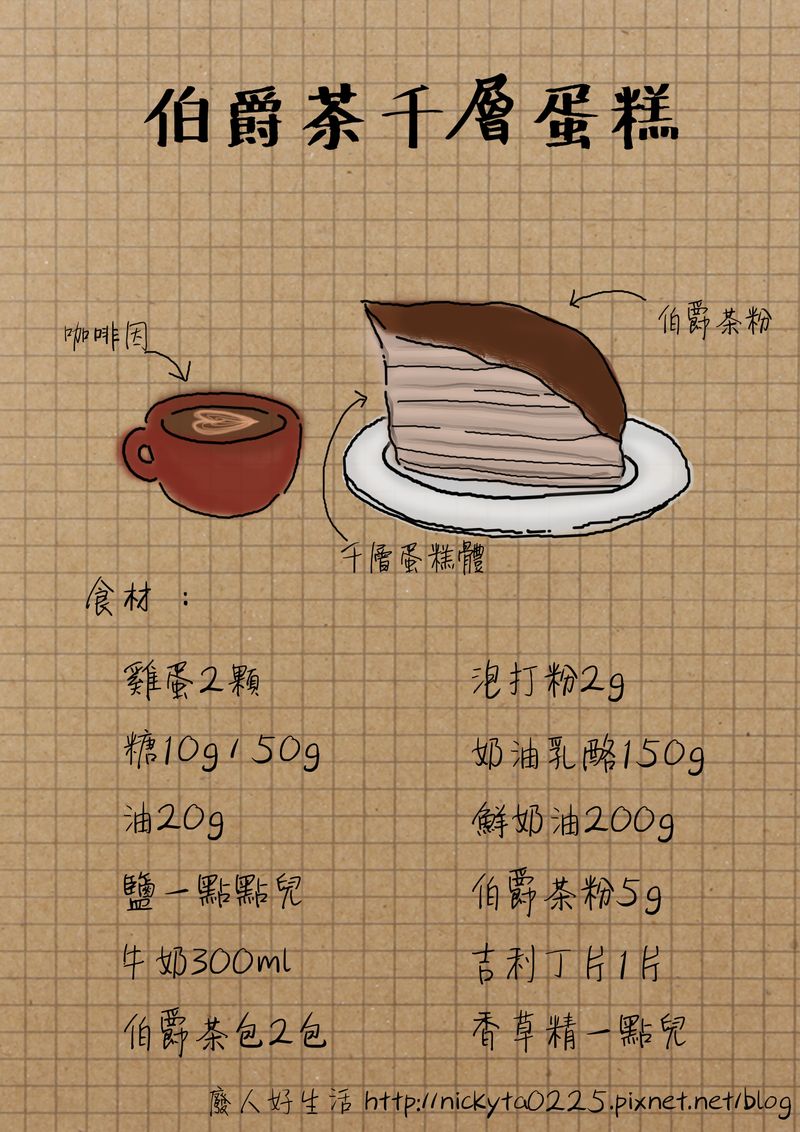 伯爵茶千層蛋糕
咖啡因
伯爵茶粉
千層蛋糕體
食材：
雞蛋2顆
糖10g/50g
油20g
鹽一點點兒
牛奶300ml
伯爵茶包2包
泡打粉2g
奶油乳酪150g
鮮奶油200g
伯爵茶粉5g
吉利丁片1片
香草精一點兒
廢人好生活 http://nickyta0225.pixnet.net/blog